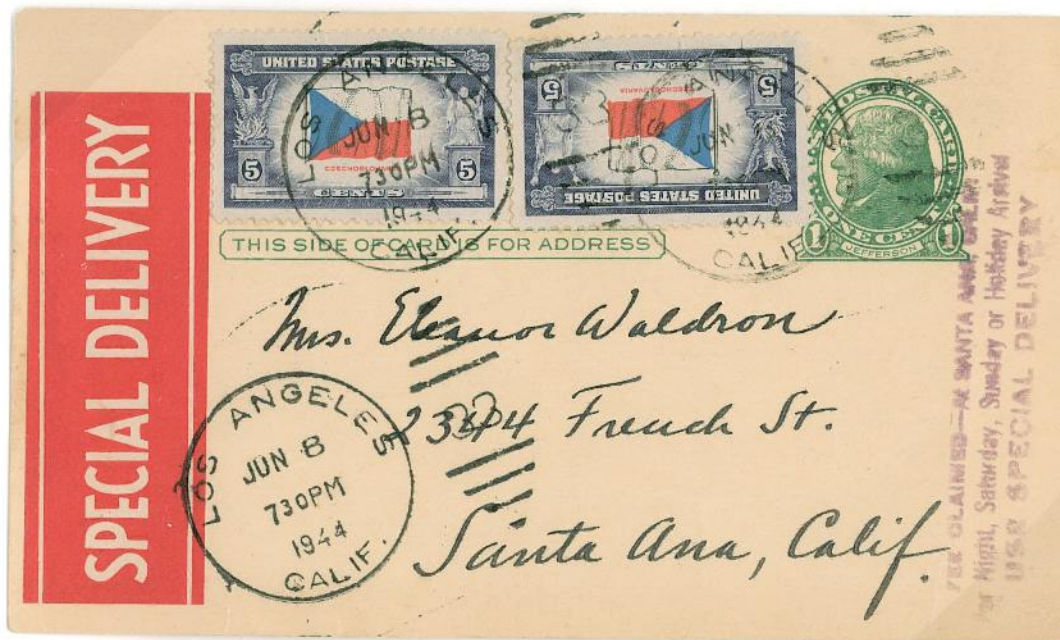 SPECIAL DELIVERY
UNITED STATES POSTAGE
5 5
CENTS
CZECHOSLOVAKIA
LOS ANGELES
JUN 8
730PM
1944
CALIF.
UNITED STATES POSTAGE
5 5
CENTS
CZECHOSLOVAKIA
JUN
1944
CALIF
1 ONE CENT 1
JEFFERSON
THIS SIDE OF CARD IS FOR ADDRESS
Mrs. Eleanor Waldron
2344 French St.
Santa Ana, Calif.
LOS ANGELES
JUN 8
730PM
1944
CALIF.
FEE CLAIMED—At SANTA ANA, CALIF.
For Night, Saturday, Sunday or Holiday Arrival
USE SPECIAL DELIVERY